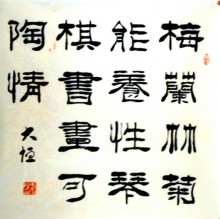 梅蘭竹菊
能養性琴
棋書畫可
陶情
大恒